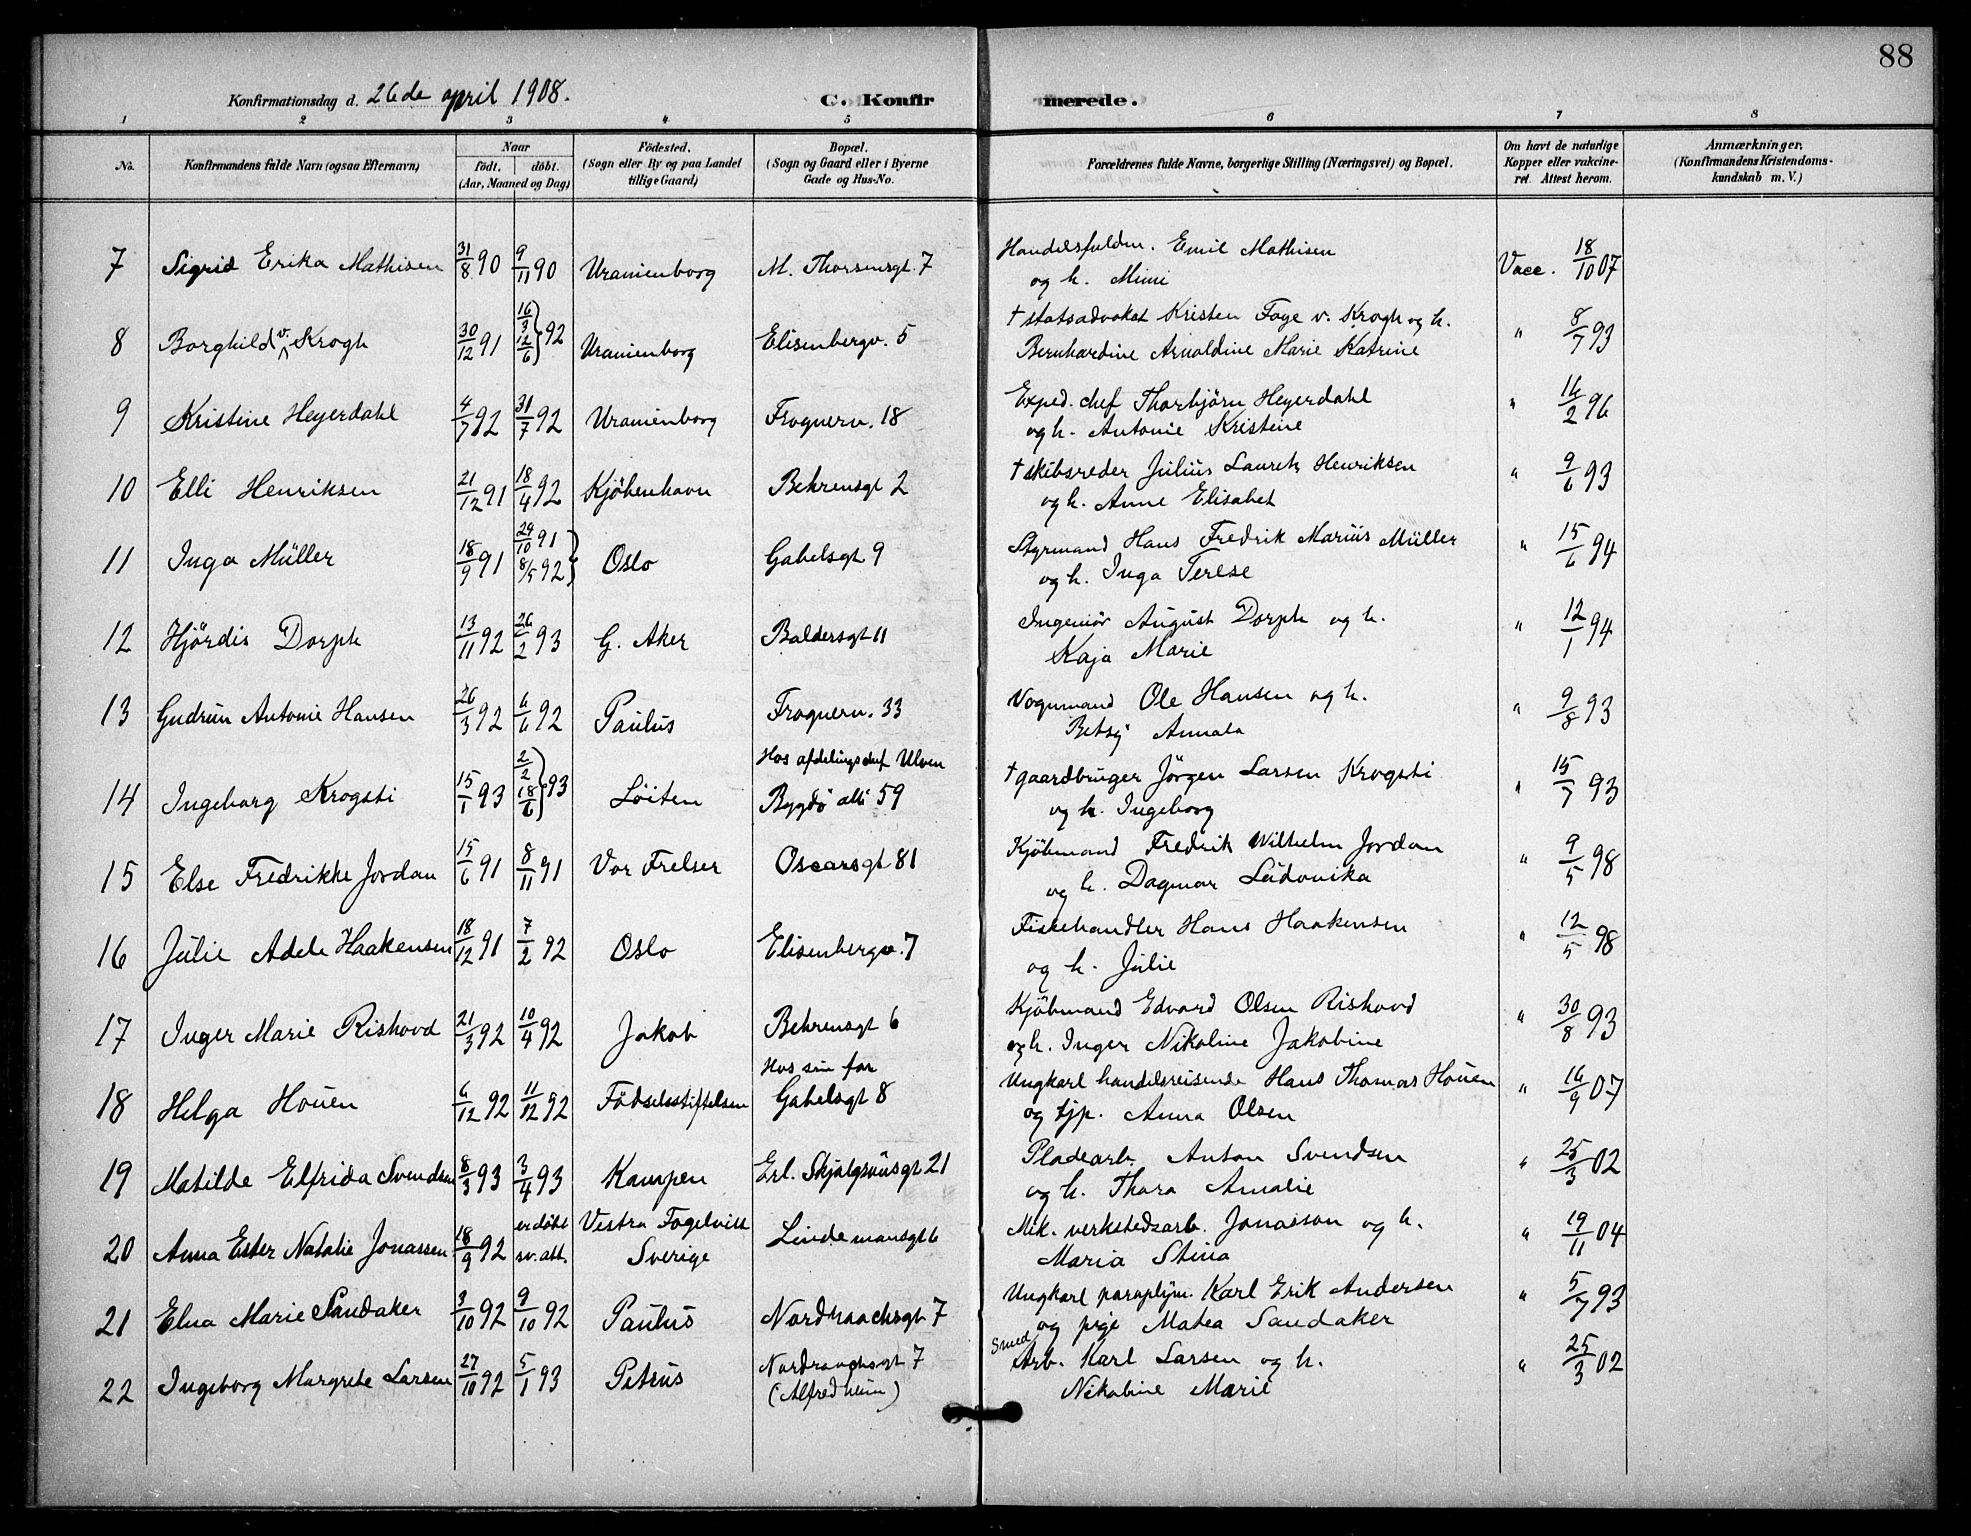 88
Konfirmationsdag d. 26de april 1908.
C. Konfirmerede.
1 2 3 4 5 6 7 8
No.
Konfirmandens fulde Navn (ogsaa Efternavn)
Naar
födt. döbt.
(Aar, Maaned og Dag)
Födested.
(Sogn eller By og paa Landet
tillige Gaard)
Bopæl.
(Sogn og Gaard eller i Byerne
Gade og Hus-No.
Forældrenes fulde Navne, borgerlige Stilling (Næringsvei) og Bopæl.
Om havt de naturlige
Kopper eller vakcine-
ret. Attest herom.
Anmærkninger.
(Konfirmandens Kristendoms-
kundskab m. V.)
7 Sigrid Erika Mathisen 31/8 90 9/11 90 Uranienborg M. Thoresensgt. 7 Handelsfuldm. Emil Mathisen
og h. Mimi Vacc. 18/10 07
8 Borghild v. Krogh 30/12 91 16/3 12/6 } 92 Uranienborg Elisenbergv. 5 † statsadvokat Kristen Faye v. Krogh og h.
Bernhardine Arnoldine Marie Katrine " 8/7 93
9 Kristine Heyerdahl 4/7 92 31/7 92 Uranienborg Frognerv. 18 Exped. chef Thorbjörn Heyerdahl
og h. Antonie Kristine " 14/2 96
10 Elli Henriksen 21/12 91 18/4 92 Kjöbenhavn Behrensgt 2 † skibsreder Julius Lauretz Henriksen
og h. Anne Elisabet " 9/6 93
11 Inga Müller 18/9 91 24/10 91 8/5 92 } Oslo Gabelsgt 9 Styrmand Hans Fredrik Marius Müller
og h. Inga Terese " 15/6 94
12 Hjördis Dorph 13/11 92 26/2 93 G. Aker Baldersgt 11 Ingeniör August Dorph og h.
Kaja Marie " 12/1 94
13 Gudrun Antonie Hansen 26/3 92 6/6 92 Paulus Frognerv. 33 Vognmand Ole Hansen og h.
Betsy Annala " 9/8 93
Hos afdelingschef Ulven
14 Ingeborg Krogsti 15/1 93 2/2 18/6 } 93 Löiten Bygdö allé 59 † gaardbruger Jörgen Larsen Krogsti
og h. Ingeborg " 15/7 93
15 Else Fredrikke Jordan 15/6 91 8/11 91 Vor Frelser Oscarsgt 81 Kjöbmand Fredrik Wilhelm Jordan
og h. Dagmar Ludovika " 9/5 98
16 Julie Adele Haakensen 18/12 91 7/2 92 Oslo Elisenbergv. 7 Fiskehandler Hans Haakensen
og h. Julie " 12/5 98
17 Inger Marie Rishovd 21/3 92 10/4 92 Jakob Behrensgt 6 Kjöbmand Edvard Olsen Rishovd
og h. Inger Nikoline Jakobine " 30/8 93
Hos sin far
18 Helga Houen 6/12 92 11/12 92 Födselsstiftelsen Gabelsgt 8 Ungkarl handelsreisende Hans Thomas Houen
og tjp. Anna Olsen " 16/9 07
19 Matilde Elfrida Svendsen 8/3 93 3/4 93 Kampen Erl. Skjalgsönsgt 21 Pladearb. Anton Svendsen
og h. Thora Amalie " 25/3 02
20 Anna Ester Natalie Jonassen 18/9 92 er döbt
sv. att. Vestra Fogelvik
Sverige Lindemansgt 6 Mek. verkstedsarb. Jonasson og h.
Maria Stina " 19/11 04
21 Elna Marie Sandaker 3/10 92 9/10 92 Paulus Nordraachsgt 7 Ungkarl paraplym. Karl Erik Andersen
og pige Matea Sandaker " 5/7 93
22 Ingeborg Margrete Larsen 27/10 92 5/1 93 Petrus Nordraachsgt 7
(Alfredheim) Smed
Arb. Karl Larsen og h.
Nikoline Marie " 25/3 02